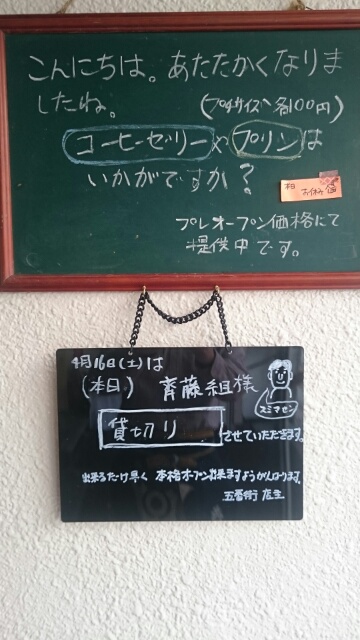 こんにちは。あたたかくなりま
したね。
(プチサイズ 各100円)
コーヒーゼリーやプリンは
いかがですか？
本日
お休み
プレオープン価格にて
提供中です。
4月16日(土)は
(本日) 齊藤組様
スミマセン
貸切り させていただきます。
出来るだけ早く 本格オープン出来ますようがんばります。
五番街 店主